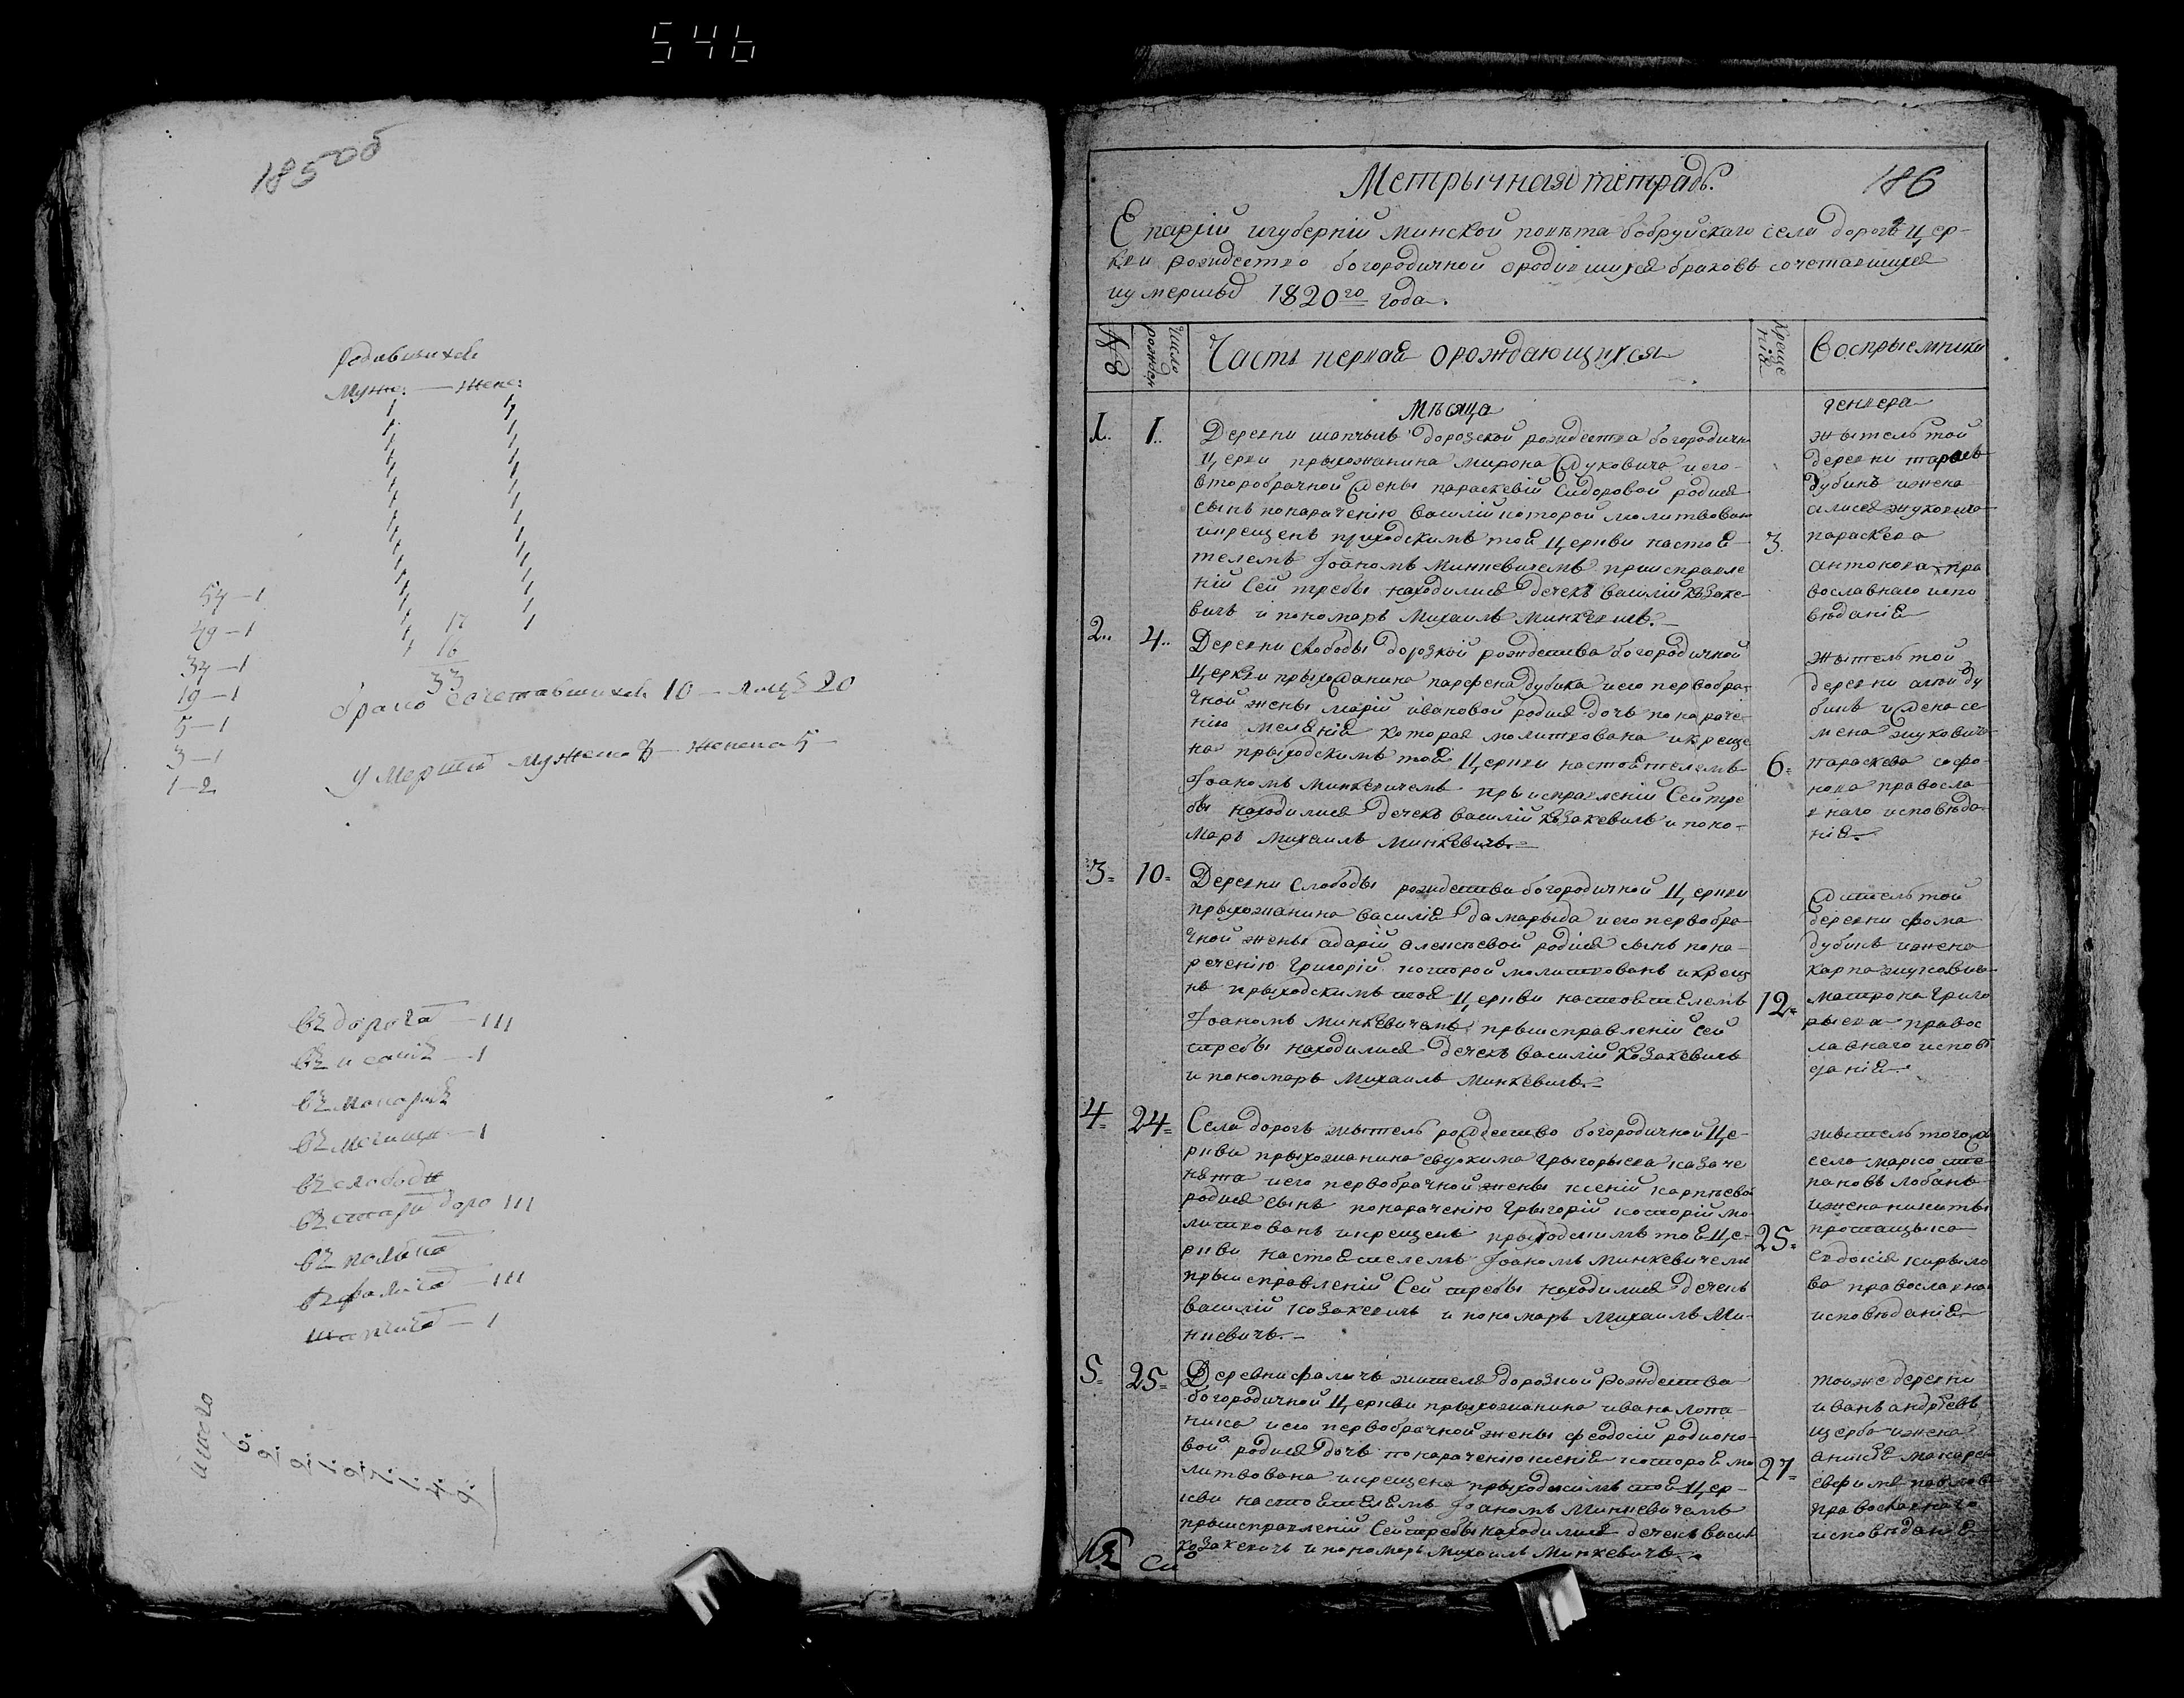 546
185об
Родившихся
Муже: — жене:
17
16
33
54—1
49—1
34—1
19—1
5—1
3—1
1—2
брако сочетавшихся 10 — лицъ 20
умерших мужеска 8 — женска 5
въ дорога — 111
— 1
— 1
въ слободы
въ стары доро 111
въ фалича — 111
— 1
Итого
186
Метрычная тетрадь.
Епархій игуберній минской повѣта бобруйскаго села дорогъ цер-
кви рождество богородичной ородившихся браковъ сочетавшихся
иумершых 1820го года.
№
Число рожден
Часть первая орождающихся
Креще нія
Воспрыемники
Мѣсяца
генвера
1..
1..
Деревни шапчыцъ дорозской рождества богородичн
церкви прыхожанина мирона жуковича иего
второбрачной жены параскевій Сидоровой родися
сынъ понаречению василій которой молитвован
икрещенъ приходскимъ той церкви настоя
телемъ Іоаномъ Минкевичемъ приисправле
ній Сей требы находилися дечекъ василій козаке-
вичъ и пономаръ Михаилъ Минкевичъ.
3.
жытель той
деревни тарасъ
дубинъ ижена
алисея жуковича
параскева
антонова пра
вославнаго испо
вѣданія
2..
4..
Деревни слободы дорозкой рождества богородичной
церкви прыхожанина парфена дубика иего первобра-
чной жены марій ивановой родися дочь понарече-
нію меланія которая молитвована икреще
на прыходскимъ той церкви настоятелемъ
Іоаномъ Минкевичемъ прыисправленій Сей тре
бы находилися дечекъ василій козакевичъ и поно-
маръ Михаилъ Минкевичъ.
6.
жытель той
деревни ду
бинъ ижена се
мена жуковича
параскева софо-
нова правосла
внаго исповѣда
нія.
3=
10=
Деревни слободы рождества богородичной церкви
прыхожанина василія дамарыда иего первобра-
чной жены адарій алексѣевой родися сынъ пона-
реченію Григорій которой молитвованъ икрещ
нъ прыходскимъ тоя церкви настоятелемъ
Іоаномъ Минкевичемъ прыисправленій сей
требы находилися дечекъ василій козакевичъ
и пономаръ Михаилъ Минкевичъ.
12=
жытель той
деревни фома
дубинъ ижена
карпа жуковича
матрона Григо
рыева правос
лавнаго исповѣ
данія.
4=
24=
Села дорогъ жытель рождество богородичной це-
ркви прыхожанина евдокима Грыгорыева казаче
нка иего первобрачной жены ксеній карпѣевой
родися сынъ понаречению Грыгорій которій мо
литвованъ икрещенъ прыходскимъ той це-
ркви настоятелемъ Іоаномъ Минкевичемъ
прыисправленій Сей требы находилися дечекъ
василій казакевичъ и пономаръ Михаилъ Ми-
нкевичъ.
25=
жытель тогож
села марко сте
пановъ лобанъ
ижена никиты
евдокія кирыло
ва православна
исповѣданія
5=
25=
Деревни фаличъ жителя дорозкой рождества
богородичной церкви прыхожанина ивана лопа-
ника иего первобрачной жены феодосій родионо-
вой родися дочь понаречению ксенія которой мо
литвована икрещена прыходскимъ той цер-
кви настоятелемъ Іоаномъ Минкевичемъ
прыисправленій Сей требы находилися дечекъ васил
козакевичъ и пономаръ Михаилъ Минкевичъ.
27=
тоиже деревни
иванъ андрѣевъ
щерба ижена
макаре
павлова
православнаго
исповѣданія